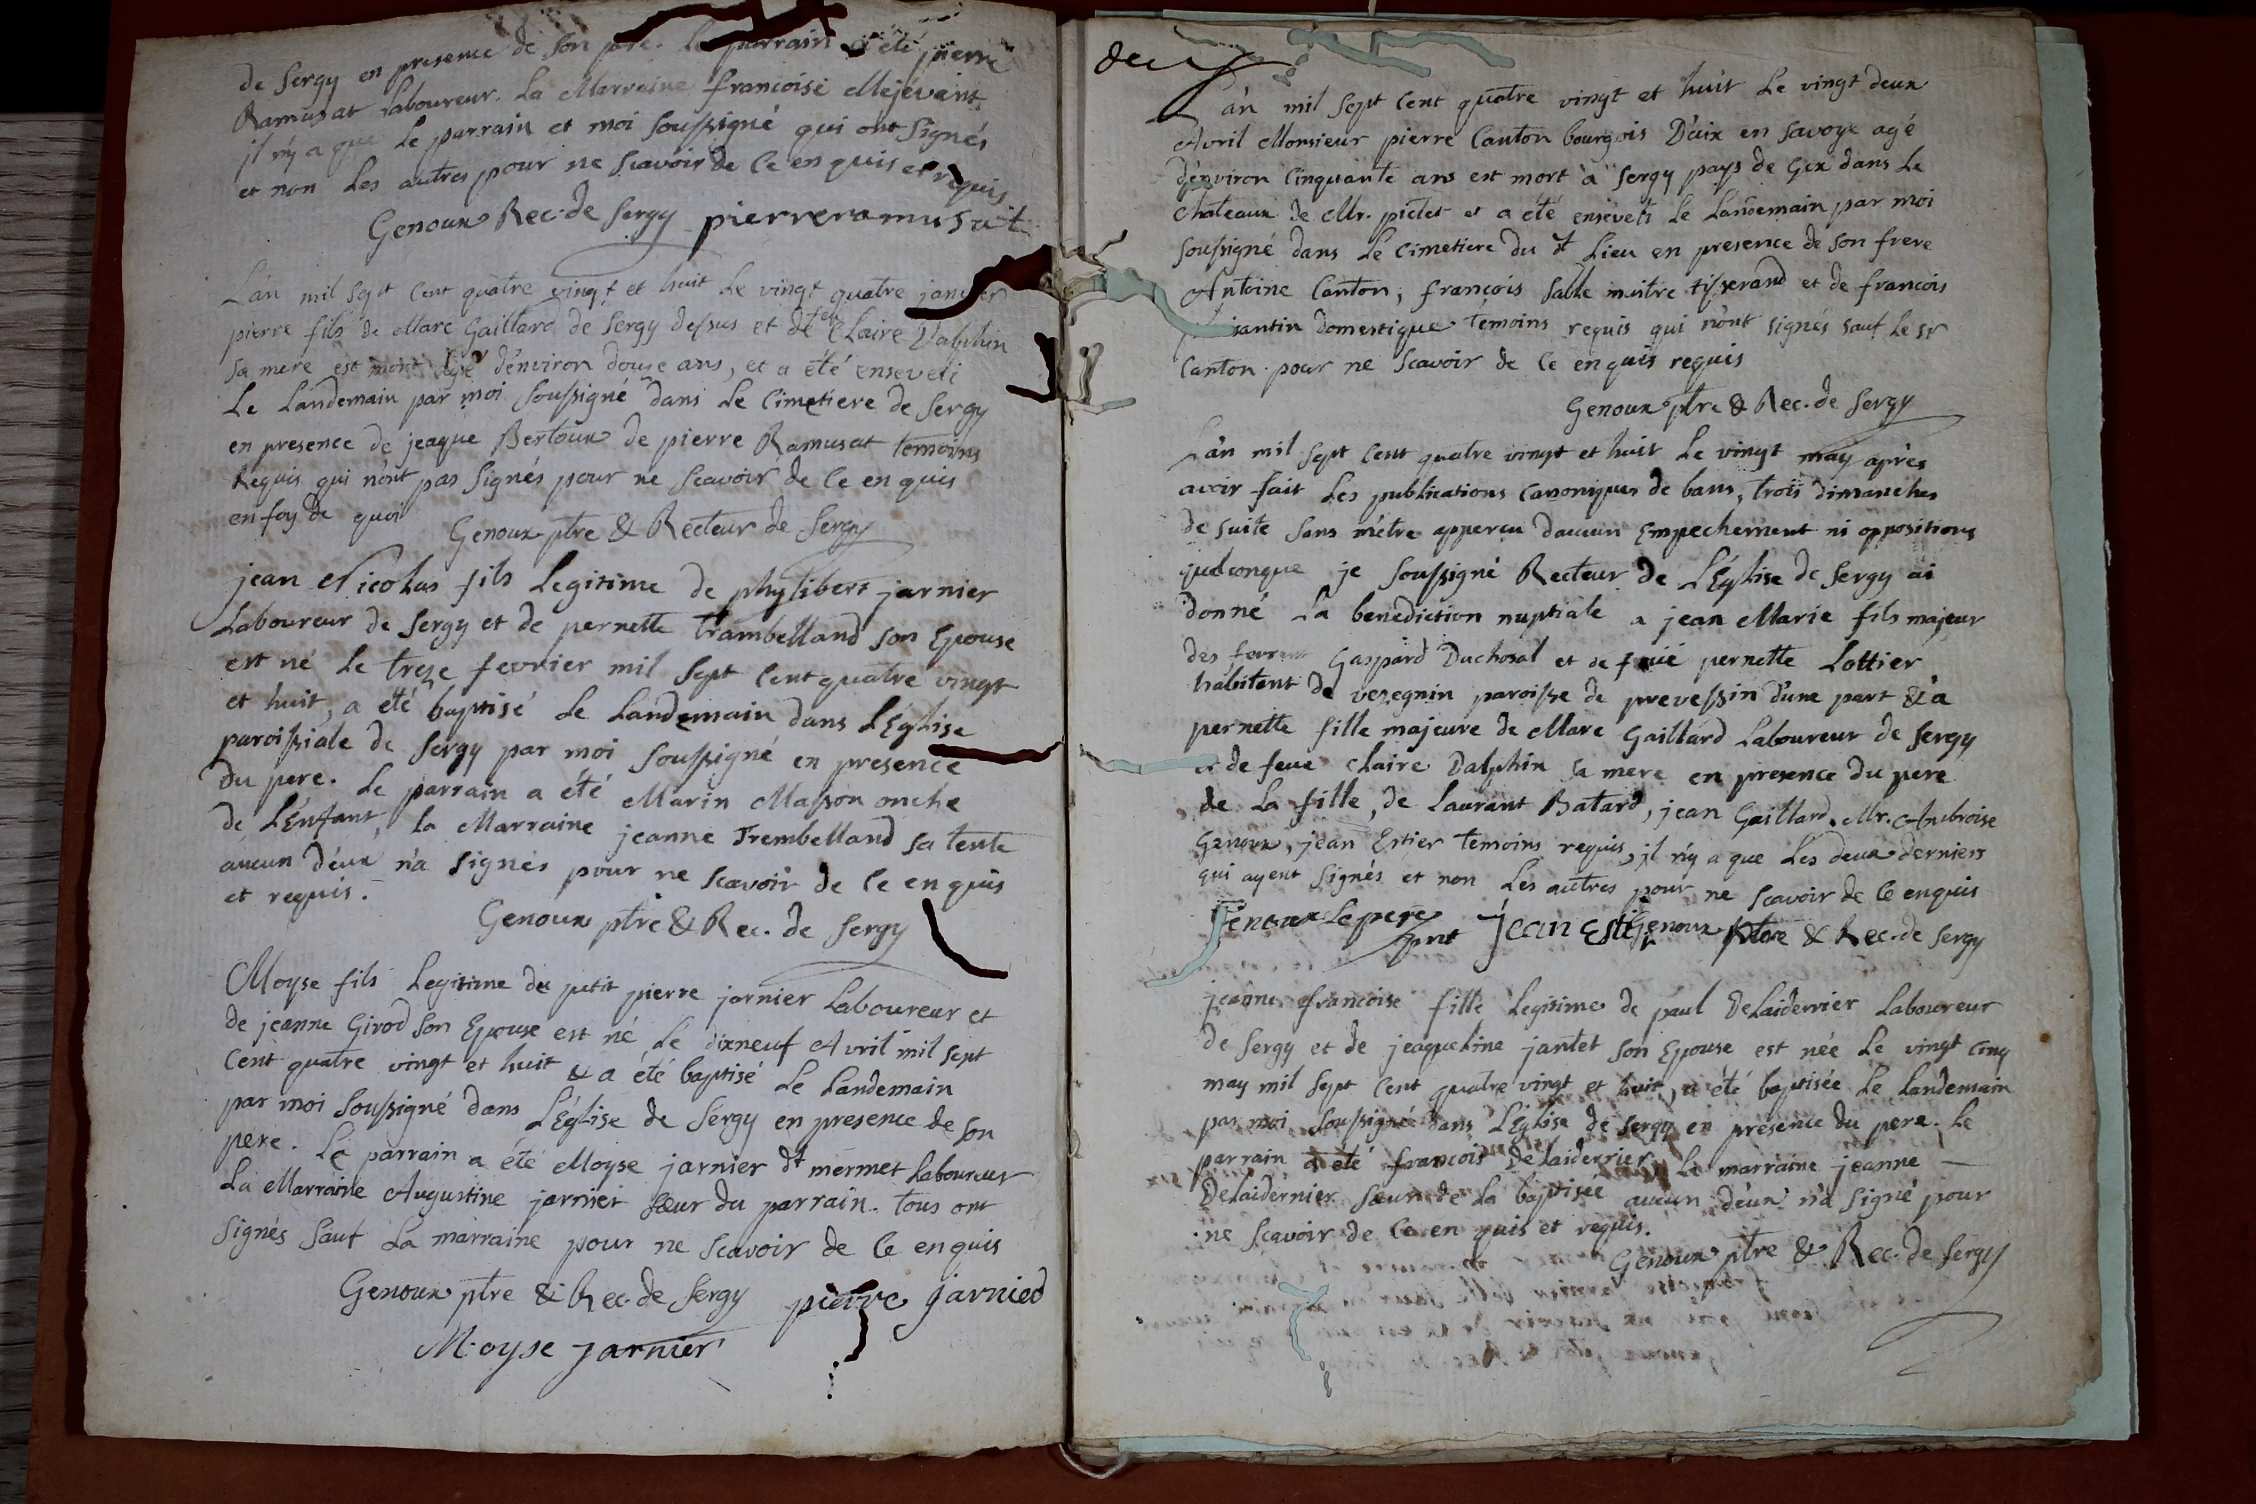 de Sergy en presence de son pere. Le parrain a été pierre
Ramusat Laboureur. La Marraine francoise Mejévant
jl n'y a que Le parrain et moi soussigné qui ont signés
et non Les autres pour ne scavoir de ce enquis et requis
Genoux Rec. de Sergy pierre ramusat
L'an mil sept cent quatre vingt et huit Le vingt quatre janvier
pierre fils de Marc Gaillard de Sergy dessus et de feu Claire Dalphin
sa mere est mort agé d'environ douze ans, et a été enseveli
Le Landemain par moi soussigné dans Le Cimetiere de Sergy
en presence de jeaque Bertoux de pierre Ramusat temoins
Requis qui n'ont pas signés pour ne scavoir de ce enquis
en foy de quoi
Genoux ptre & Recteur de Sergy
jean Nicolas fils Legitime de phylibert jarnier
Laboureur de Sergy et de pernette trambelland son Epouse
est né Le treze fevrier mil sept cent quatre vingt
et huit, a été baptisé Le Landemain dans L'Eglise
paroissiale de Sergy par moi soussigné en presence
du pere. Le parrain a été Marin Masson oncle
de L'Enfant, La Marraine jeanne Trembelland sa tente
aucun d'eux n'a signés pour ne scavoir de ce enquis
et requis.
Genoux ptre & Rec. de Sergy
Moyse fils Legitime de petit pierre jarnier Laboureur et
de jeanne Girod son Epouse est né Le dixneuf Avril mil sept
cent quatre vingt et huit & a été baptisé Le Landemain
par moi soussigné dans L'Eglise de Sergy en presence de son
pere. Le parrain a été Moyse jarnier dt mermet Laboureur
La Marraine Augustine jarnier sœur du parrain. tous ont
signés sauf La marraine pour ne scavoir de ce enquis
Genoux ptre & Rec. de Sergy pierre jarnied
Moyse jarnier
deux
L'an mil sept cent quatre vingt et huit Le vingt deux
Avril Monsieur pierre Canton bourgois D'aix en savoye agé
d'environ cinquante ans est mort à Sergy pays de Gex dans Le
Chateaux de Mr. pictet et a été enseveli Le Landemain par moi
soussigné dans Le Cimetiere du dt Lieu en presence de son frere
Antoine Canton, françois Salle maitre tisserand et de francois
domestique temoins requis qui n'ont signés sauf Le sr
Canton pour ne scavoir de ce enquis requis
Genoux ptre & Rec. de Sergy
L'an mil sept cent quatre vingt et huit Le vingt may après
avoir fait Les publications canoniques de bans, trois dimanches
de suite sans m'etre apperçu d'aucun Empechement ni oppositions
quelconque je soussigné Recteur de L'Eglise de Sergy ai
donné La benediction nuptiale a jean Marie fils majeur
des Gaspard Duchosal et de feue pernette Lottier
habitant de veregnin paroisse de prevessin d'une part & a
pernette fille majeure de Marc Gaillard Laboureur de Sergy
et de feue Claire Dalphin sa mere en presence du pere
de La fille, de Laurant Batard, jean Gaillard, Mr. Ambroise
Genoux, jean Estier temoins requis, jl n'y a que Les deux derniers
qui ayent signés et non Les autres pour ne scavoir de ce enquis
Genoux Le pere pnt jean Estier Genoux ptre & Rec. de Sergy
jeanne francoise fille Legisime de paul Delaidernier Laboureur
de Sergy et de jeaqueline jantet son Epouse est née Le vingt cinq
may mil sept cent quatre vingt et huit, a été baptisée Le Landemain
par moi soussigné dans L'Eglise de Sergy en presence du pere. Le
parrain a été francois Delaidernier, La marraine jeanne
Delaidernier sœur de La baptisée aucun d'eux n'a signé pour
ne scavoir de ce enquis et requis.
Genoux ptre & Rec. de Sergy